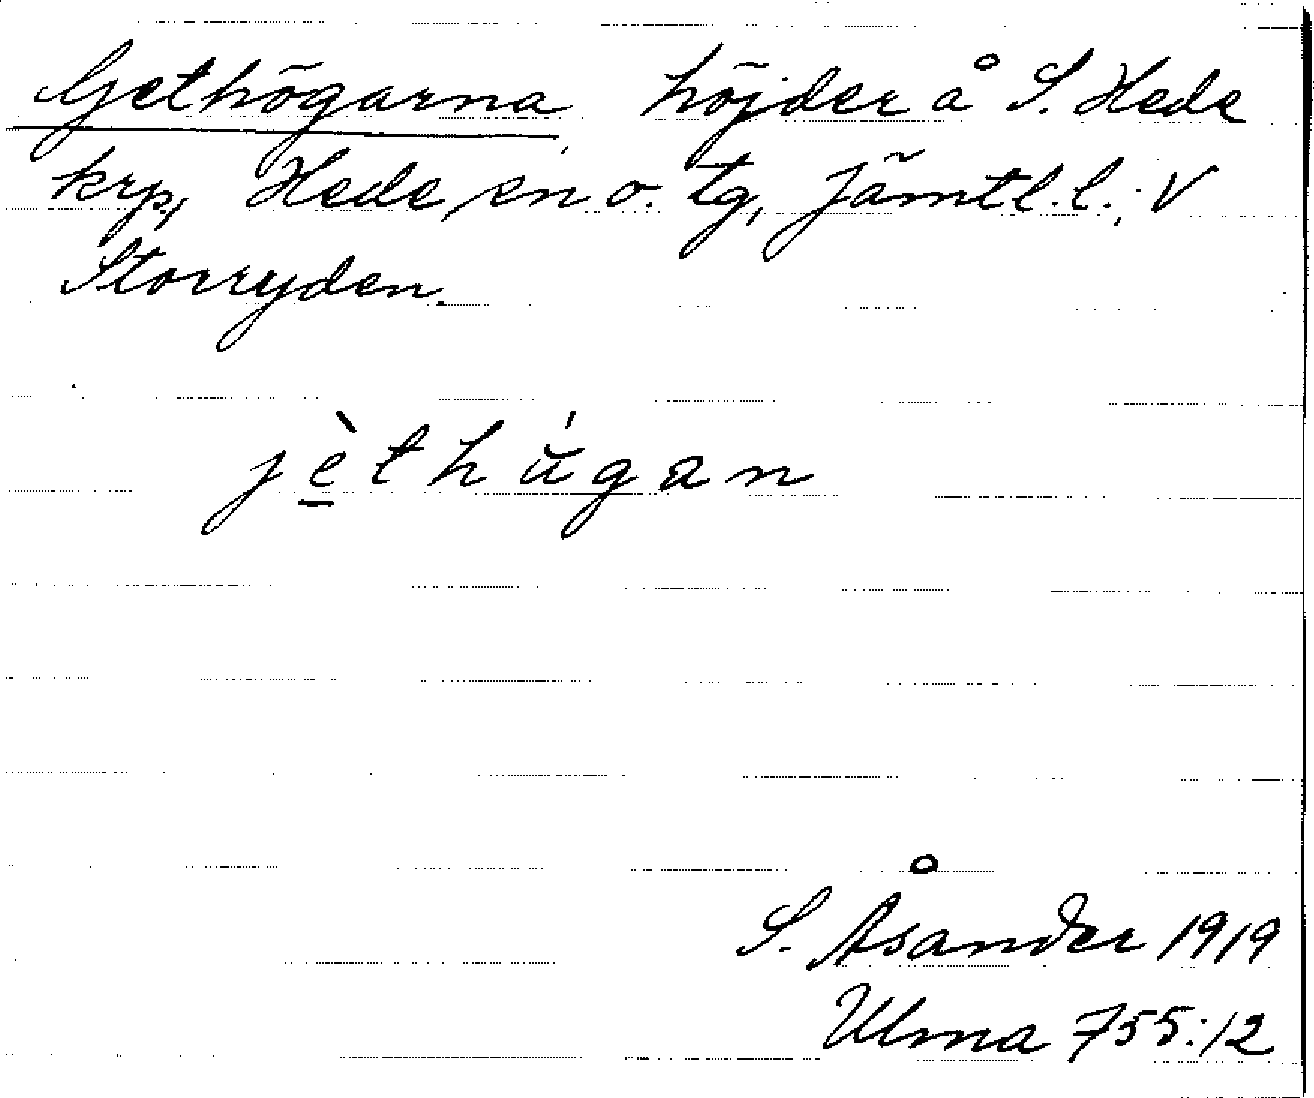 Gethögarna höjder å S. Hede
krp, Hede sn o. tg, Jämtl. l.; V
Storryden.
jèthúgan
S. Åsander 1919
Ulma 755:12